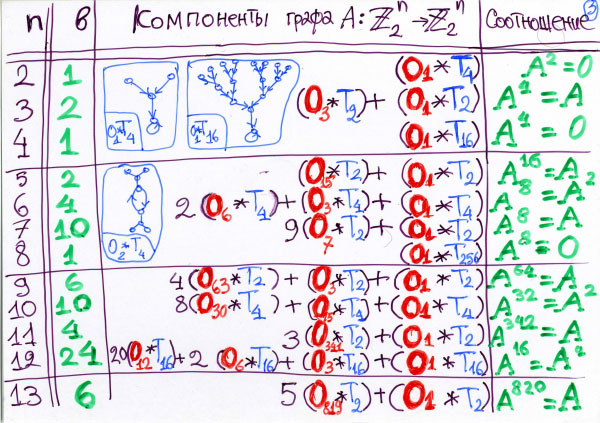 n в Компоненты графа A: ℤ₂ⁿ → ℤ₂ⁿ Соотношение 3
2 1 (O₁*T₄) A²=0
3 2 (O₃*T₂)+(O₁*T₂) A⁴=A
4 1 (O₁*T₁₆) A⁴=0
O₁*T₄
O₁*T₁₆
5 2 (O₁₅*T₂)+(O₁*T₂) A¹⁶=A
6 4 2(O₆*T₄)+(O₃*T₄)+(O₁*T₄) A⁸=A²
7 10 9(O₇*T₂)+(O₁*T₂) A⁸=A
8 1 (O₁*T₂₅₆) A⁸=0
O₂*T₄
9 6 4(O₆₃*T₂)+(O₃*T₂)+(O₁*T₂) A⁶⁴=A
10 10 8(O₃₀*T₄)+(O₁₅*T₄)+(O₁*T₄) A³²=A²
11 4 3(O₃₄₁*T₂)+(O₁*T₂) A³⁴²=A
12 24 20(O₁₂*T₁₆)+2(O₆*T₁₆)+(O₃*T₁₆)+(O₁*T₁₆) A¹⁶=A⁴
13 6 5(O₈₁₉*T₂)+(O₁*T₂) A⁸²⁰=A